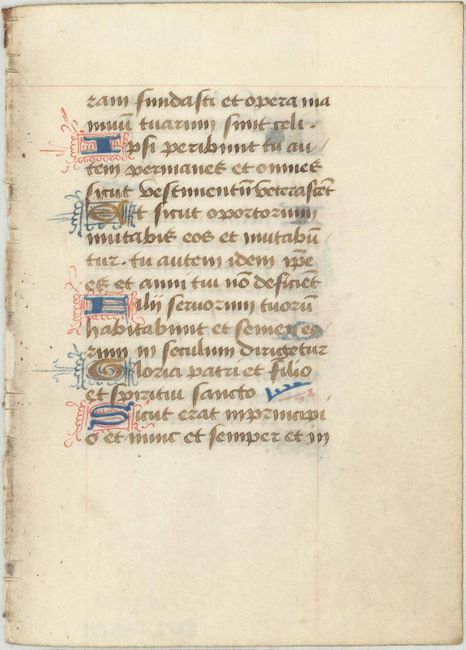 ram fundasti et opera ma
nuū tuarum sunt celi.
Ipsi peribunt tu au/
tem permanes et omnes
sicut vestimentū veterascēt
Et sicut oportorium
mutabis eos et mutabū/
tur. tu autem idem ip̄e
es et anni tui nō deficiēt
Filii servorum tuorū
habitabunt et semen eo/
rum in seculum dirigetur
Gloria patri et filio
et spiritui sancto
Sicut erat in principi
o et nunc et semper et in